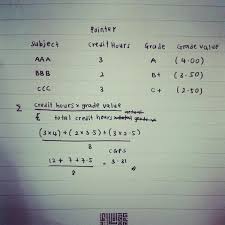 Pointer
Subject Credit Hours Grade Grade value
AAA 3 A (4.00)
BBB 2 B+ (3.50)
CCC 3 C+ (2.50)
Σ credit hours x grade value
£ total credit hours
(3x4)+(2x3.5)+(3x2.5)
8
CGPS
12 + 7 + 7.5 = 3.31
8